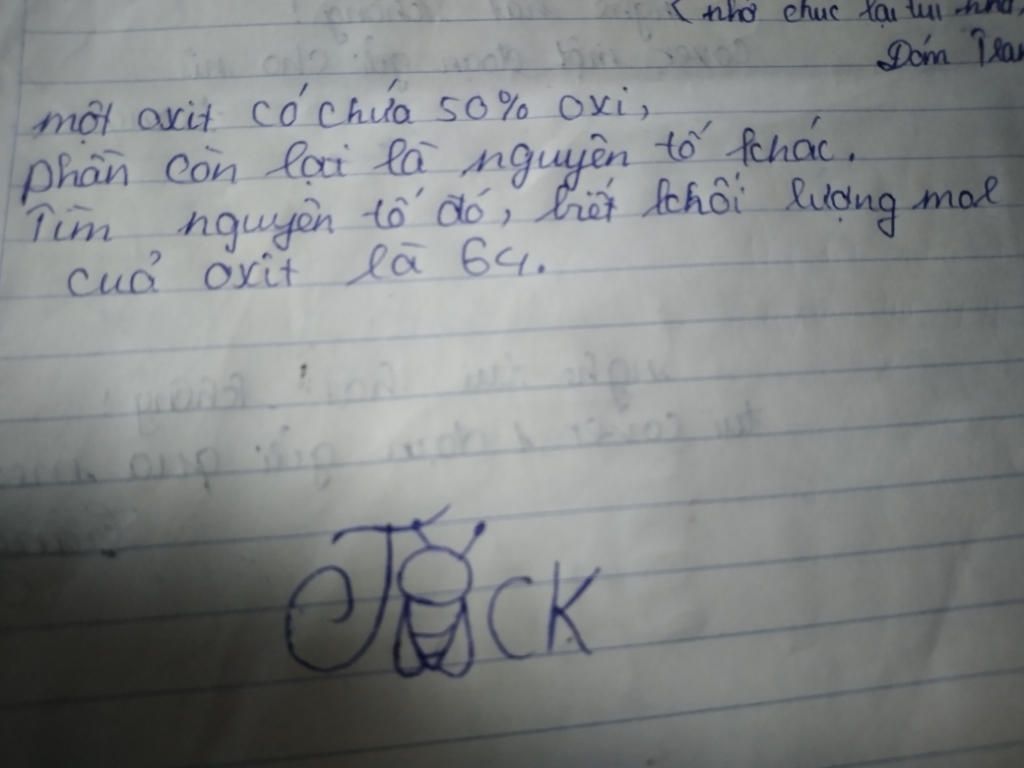 ( nhớ chúc lại tui nha,
Đóm
một oxit có chứa 50% oxi,
phần còn lại là nguyên tố khác.
Tìm nguyên tố đó, biết khối lượng mol
cuả oxit là 64.
JACK